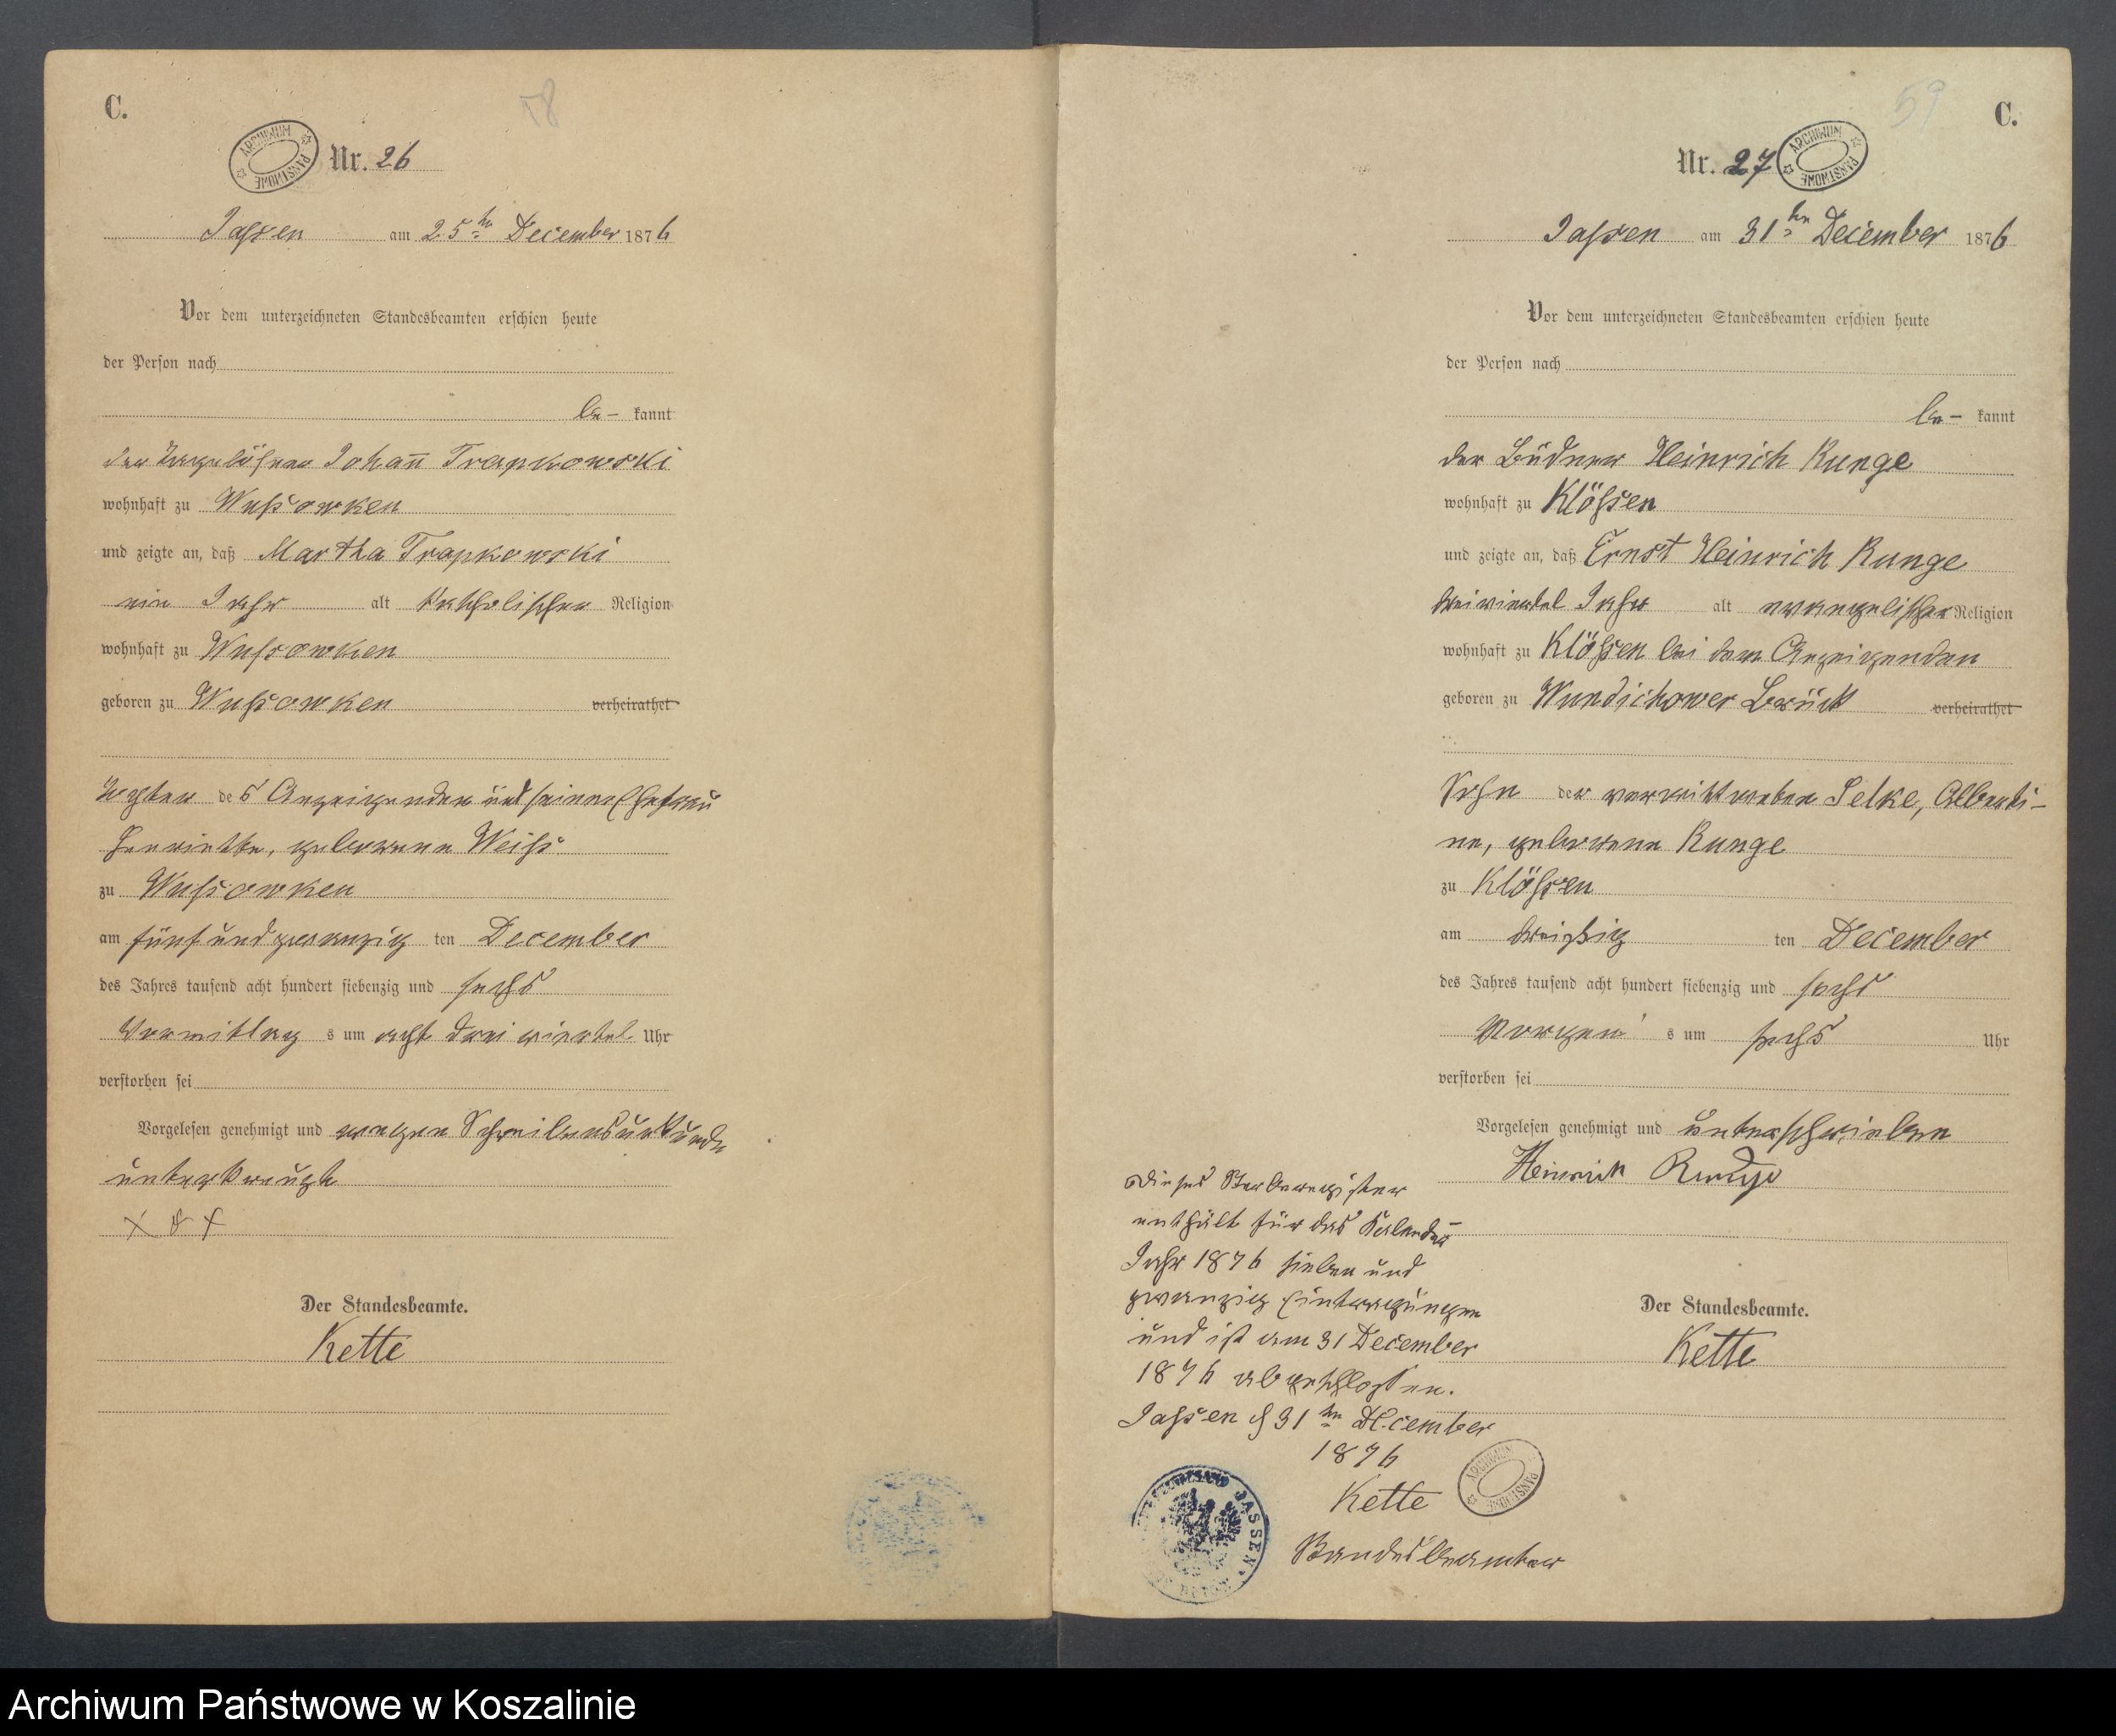 C.
58
ARCHIWUM PAŃSTWOWE
Nr. 26
Jassen am 25ten December 1876
Vor dem unterzeichneten Standesbeamten erschien heute
der Person nach
be- kannt
der Tagelöhner Johann Trapkowski
wohnhaft zu Wussowken
und zeigte an, daß Martha Trapkowski
ein Jahr alt katholischer Religion
wohnhaft zu Wussowken
geboren zu Wussowken verheirathet
Tochter des Anzeigenden und seiner Ehefrau
Henriette, geborenen Weiß
zu Wussowken
am fünfundzwanzig ten December
des Jahres tausend acht hundert siebenzig und sechs
Vormittag s um acht drei viertel Uhr
verstorben sei
Vorgelesen genehmigt und wegen Schreibensunkunde
unterkreuzt
X X X
Der Standesbeamte.
Kette
59
C.
Nr. 27
ARCHIWUM PAŃSTWOWE
Jassen am 31ten December 1876
Vor dem unterzeichneten Standesbeamten erschien heute
der Person nach
be- kannt
der Büdner Heinrich Runge
wohnhaft zu Klössen
und zeigte an, daß Ernst Heinrich Runge
dreiviertel Jahr alt evangelischer Religion
wohnhaft zu Klössen bei dem Anzeigenden
geboren zu Wundichower Brück verheirathet
Sohn der verwittweten Selke, Alberti-
ne, geborene Runge
zu Klössen
am dreißig ten December
des Jahres tausend acht hundert siebenzig und sechs
Morgen s um sechs Uhr
verstorben sei
Vorgelesen genehmigt und unterschrieben
Heinrich Runge
Der Standesbeamte.
Kette
Dieses Sterberegister
enthält für das Kalender-
Jahr 1876 sieben und
zwanzig Eintragungen
und ist am 31 December
1876 abgeschlossen.
Jassen d 31ten December
1876
Kette
Standesbeamter
ARCHIWUM PAŃSTWOWE
JASSEN
Archiwum Państwowe w Koszalinie